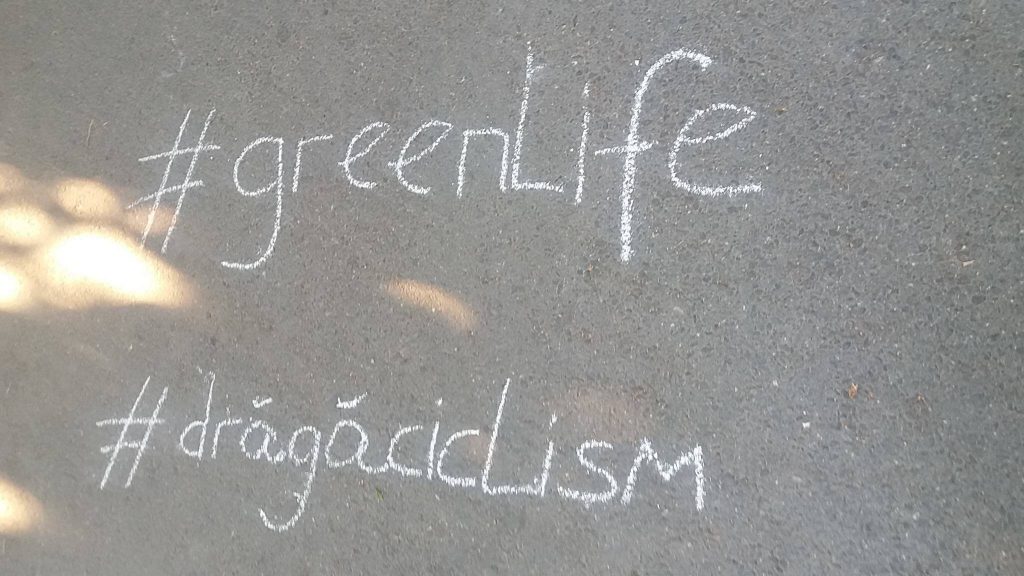 #greenLife
#drăgăcicLism